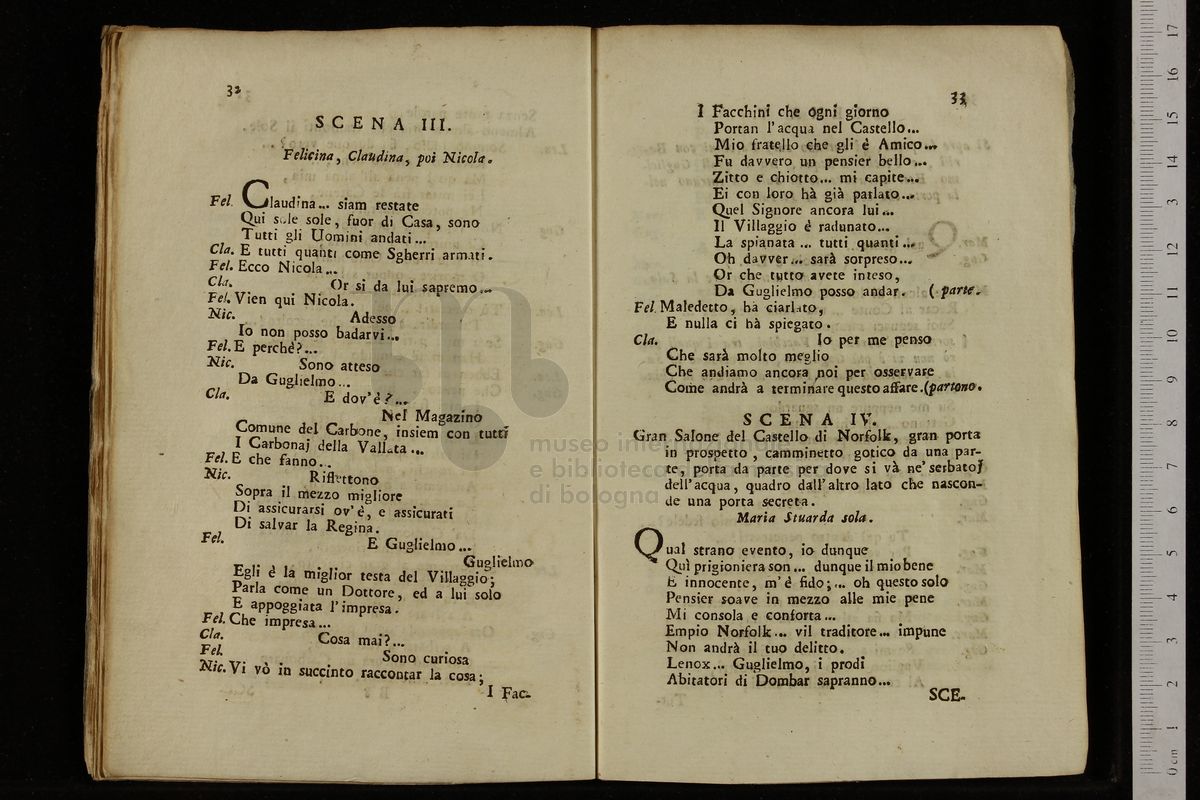 32
SCENA III.
Felicina, Claudina, poi Nicola.
Fel. Claudina... siam restate
Qui sole sole, fuor di Casa, sono
Tutti gli Uomini andati...
Cla. E tutti quanti come Sgherri armati.
Fel. Ecco Nicola...
Cla. Or si da lui sapremo...
Fel. Vien qui Nicola.
Nic. Adesso
Io non posso badarvi...
Fel. E perchè?...
Nic. Sono atteso
Da Guglielmo...
Cla. E dov'è?...
Nel Magazino
Comune del Carbone, insiem con tutti
I Carbonaj della Vallata...
Fel. E che fanno...
Nic. Riflettono
Sopra il mezzo migliore
Di assicurarsi ov'è, e assicurati
Di salvar la Regina.
Fel. E Guglielmo...
Guglielmo
Egli è la miglior testa del Villaggio;
Parla come un Dottore, ed a lui solo
E appoggiata l'impresa.
Fel. Che impresa...
Cla. Cosa mai?...
Fel. Sono curiosa
Nic. Vi vò in succinto raccontar la cosa;
I Fac-
33
I Facchini che ogni giorno
Portan l'acqua nel Castello...
Mio fratello che gli è Amico...
Fu davvero un pensier bello...
Zitto e chiotto... mi capite...
Ei con loro hà già parlato...
Quel Signore ancora lui...
Il Villaggio è radunato...
La spianata ... tutti quanti...
Oh davver... sarà sorpreso...
Or che tutto avete inteso,
Da Guglielmo posso andar. (parte.
Fel. Maledetto, ha ciarlato,
E nulla ci hà spiegato.
Cla. Io per me penso
Che sarà molto meglio
Che andiamo ancora noi per osservare
Come andrà a terminare questo affare. (partono.
SCENA IV.
Gran Salone del Castello di Norfolk, gran porta
in prospetto, camminetto gotico da una par-
te, porta da parte per dove si và ne' serbatoj
dell'acqua, quadro dall'altro lato che nascon-
de una porta secreta.
Maria Stuarda sola.
Qual strano evento, io dunque
Quì prigioniera son... dunque il mio bene
È innocente, m'è fido;... oh questo solo
Pensier soave in mezzo alle mie pene
Mi consola e conforta...
Empio Norfolk... vil traditore... impune
Non andrà il tuo delitto.
Lenox... Guglielmo, i prodi
Abitatori di Dombar sapranno...
SCE-
museo internazionale
e biblioteca
di bologna